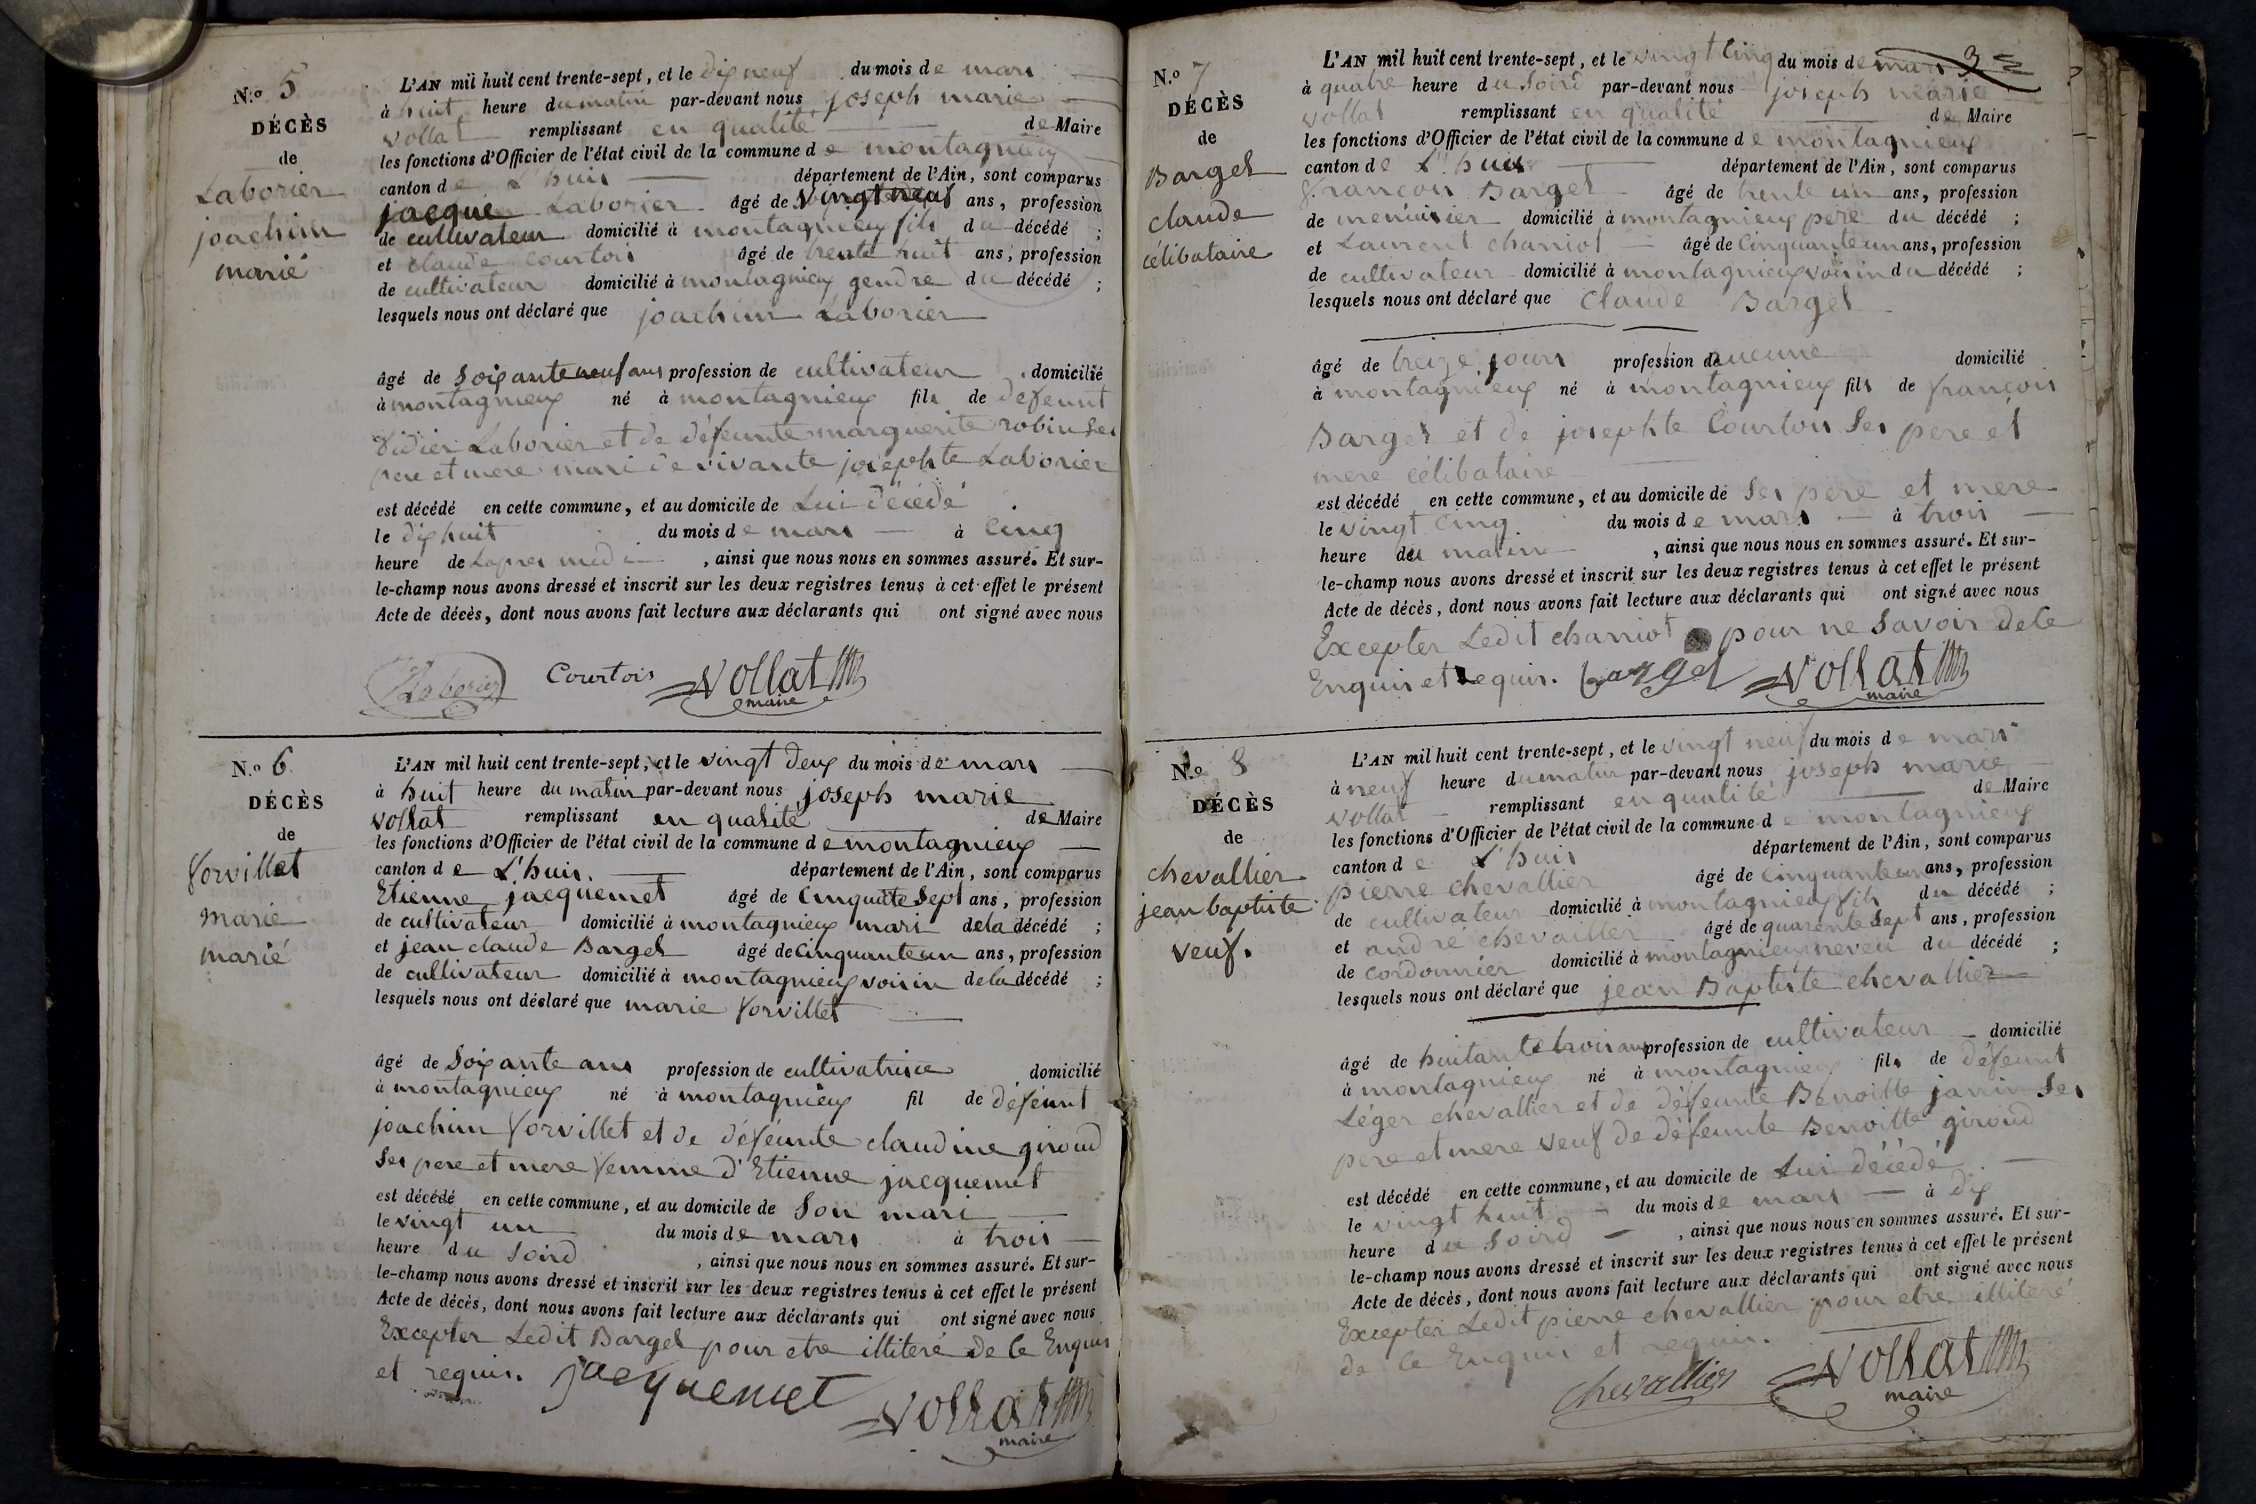 N.º 5
DÉCÈS
de
Laborier
joachim
marié
L'AN mil huit cent trente-sept, et le dix neuf du mois de mars
à huit heure du matin par-devant nous joseph marie
vollat remplissant en qualité de Maire
les fonctions d'Officier de l'état civil de la commune de montagnieux
canton de L'huis département de l'Ain, sont comparus
jacque Laborier âgé de vingt neuf ans, profession
de cultivateur domicilié à montagnieux fils du décédé ;
et claude courtois âgé de trente huit ans, profession
de cultivateur domicilié à montagnieux gendre du décédé ;
lesquels nous ont déclaré que joachim Laborier
âgé de Soixante neuf ans profession de cultivateur domicilié
à montagnieux né à montagnieux fils de défeunt
Didier Laborier et de défeunte marguerite robin Ses
pere et mere mari de vivante josephte Laborier
est décédé en cette commune, et au domicile de Lui décédé
le dix huit du mois de mars à Cinq
heure de Lapres midi , ainsi que nous nous en sommes assuré. Et sur-
le-champ nous avons dressé et inscrit sur les deux registres tenus à cet effet le présent
Acte de décès, dont nous avons fait lecture aux déclarants qui ont signé avec nous
Laborier Courtois Vollat
maire
N.º 6
DÉCÈS
de
Vorvillet
marie
marié
L'AN mil huit cent trente-sept, et le vingt deux du mois de mars
à huit heure du matin par-devant nous joseph marie
vollat remplissant en qualité de Maire
les fonctions d'Officier de l'état civil de la commune de montagnieux
canton de L'huis. département de l'Ain, sont comparus
Etienne jacquemet âgé de Cinquate Sept ans, profession
de cultivateur domicilié à montagnieux mari de la décédé ;
et jean claude Barget âgé de Cinquante un ans, profession
de cultivateur domicilié à montagnieux voisin de la décédé ;
lesquels nous ont déclaré que marie Vorvillet
âgé de Soixante ans profession de cultivatrice domicilié
à montagnieux né à montagnieux fil de défeunt
joachim Vorvillet et de défeunte claudine giroud
Ses pere et mere femme d'Etienne jacquemet
est décédé en cette commune, et au domicile de Son mari
le vingt un du mois de mars à trois
heure du Soird , ainsi que nous nous en sommes assuré. Et sur-
le-champ nous avons dressé et inscrit sur les deux registres tenus à cet effet le présent
Acte de décès, dont nous avons fait lecture aux déclarants qui ont signé avec nous
Excepter Ledit Barget pour etre illiteré de Ce Enquis
et requis. jacquemet Vollat
maire
3
N.º 7
DÉCÈS
de
Barget
claude
célibataire
L'AN mil huit cent trente-sept, et le vingt Cinq du mois de mars
à quatre heure du Soird par-devant nous joseph marie
vollat remplissant en qualité de Maire
les fonctions d'Officier de l'état civil de la commune de montagnieux
canton de L'huis département de l'Ain, sont comparus
françois Barget âgé de trente un ans, profession
de menuisier domicilié à montagnieux pere du décédé ;
et Laurent charriot âgé de Cinquante un ans, profession
de cultivateur domicilié à montagnieux voisin du décédé ;
lesquels nous ont déclaré que Claude Barget
âgé de treize jours profession de aucune domicilié
à montagnieux né à montagnieux fils de françois
Barget et de josephte Courtois Ses pere et
mere célibataire
est décédé en cette commune, et au domicile de Ses pere et mere
le vingt Cinq du mois de mars à trois
heure du matin , ainsi que nous nous en sommes assuré. Et sur-
le-champ nous avons dressé et inscrit sur les deux registres tenus à cet effet le présent
Acte de décès, dont nous avons fait lecture aux déclarants qui ont signé avec nous
Excepter Ledit charriot pour ne Savoir de Ce
Enquis et Requis. barget Vollat
maire
N.º 8
DÉCÈS
de
chevallier
jean baptiste
veuf.
L'AN mil huit cent trente-sept, et le vingt neuf du mois de mars
à neuf heure du matin par-devant nous joseph marie
vollat remplissant en qualité de Maire
les fonctions d'Officier de l'état civil de la commune de montagnieux
canton de L'huis département de l'Ain, sont comparus
pierre chevallier âgé de Cinquante un ans, profession
de cultivateur domicilié à montagnieux fils du décédé ;
et andré chevallier âgé de quarente Sept ans, profession
de cordonnier domicilié à montagnieux neveu du décédé ;
lesquels nous ont déclaré que jean Baptiste chevallier
âgé de huitante trois ans profession de cultivateur domicilié
à montagnieux né à montagnieux fils de défeunt
Léger chevallier et de défeunte Benoitte janin Ses
pere et mere veuf de défeunte Benoitte giroud
est décédé en cette commune, et au domicile de Lui décédé
le vingt huit du mois de mars à dix
heure du Soird , ainsi que nous nous en sommes assuré. Et sur-
le-champ nous avons dressé et inscrit sur les deux registres tenus à cet effet le présent
Acte de décès, dont nous avons fait lecture aux déclarants qui ont signé avec nous
Excepter Ledit pierre chevallier pour etre illiteré
de Ce Enquis et requis.
chevallier Vollat
maire